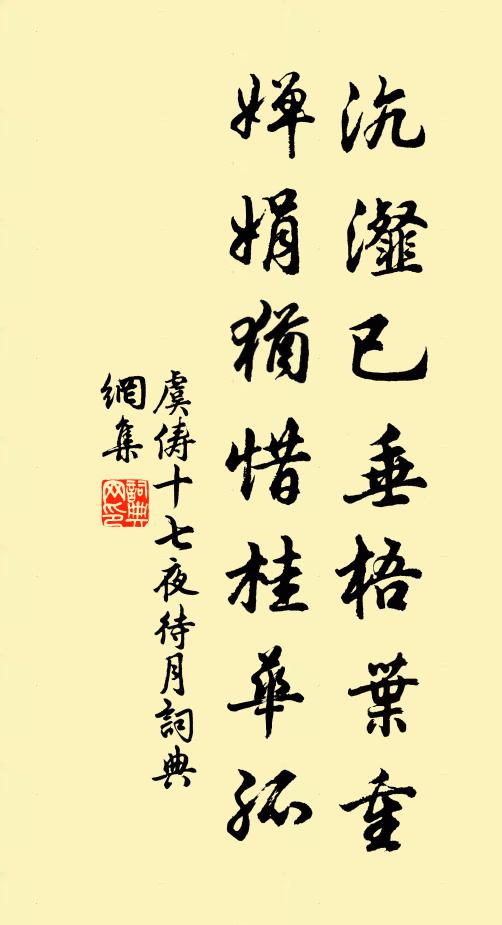 沆瀣已垂梧葉重
嬋娟猶惜桂華孤
虞儔十七夜待月詞典
網集
詞典
网印